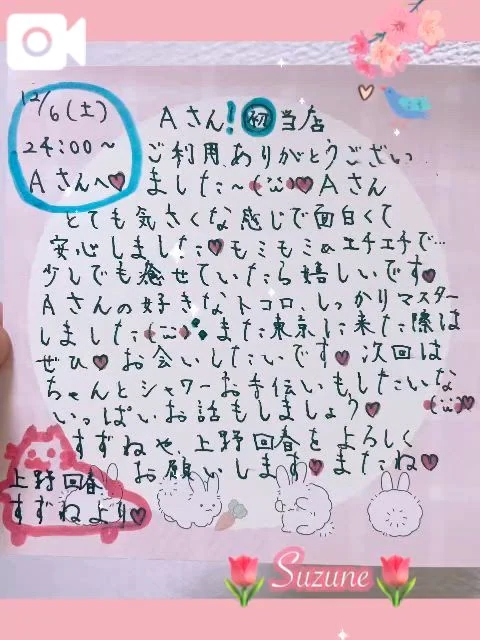 12/6(土)
24:00〜
Aさんへ♥
Aさん! ㊝当店
ご利用ありがとうござい
ました〜(¨)♥Aさん
とても気さくな感じで面白くて
安心しました♥モミモミもエチエチで…
少しでも癒せていたら嬉しいです♥
Aさんの好きなトコロ、しっかりマスター
しました(¨) また東京に来た際は
ぜひ♥お会いしたいです♥次回は
ちゃんとシャワーお手伝いもしたいな
いっぱいお話もしましょ♡(¨)♥
すずねや、上野回春をよろしく
お願いします♥またね♥
上野回春
すずねより♥
Suzune